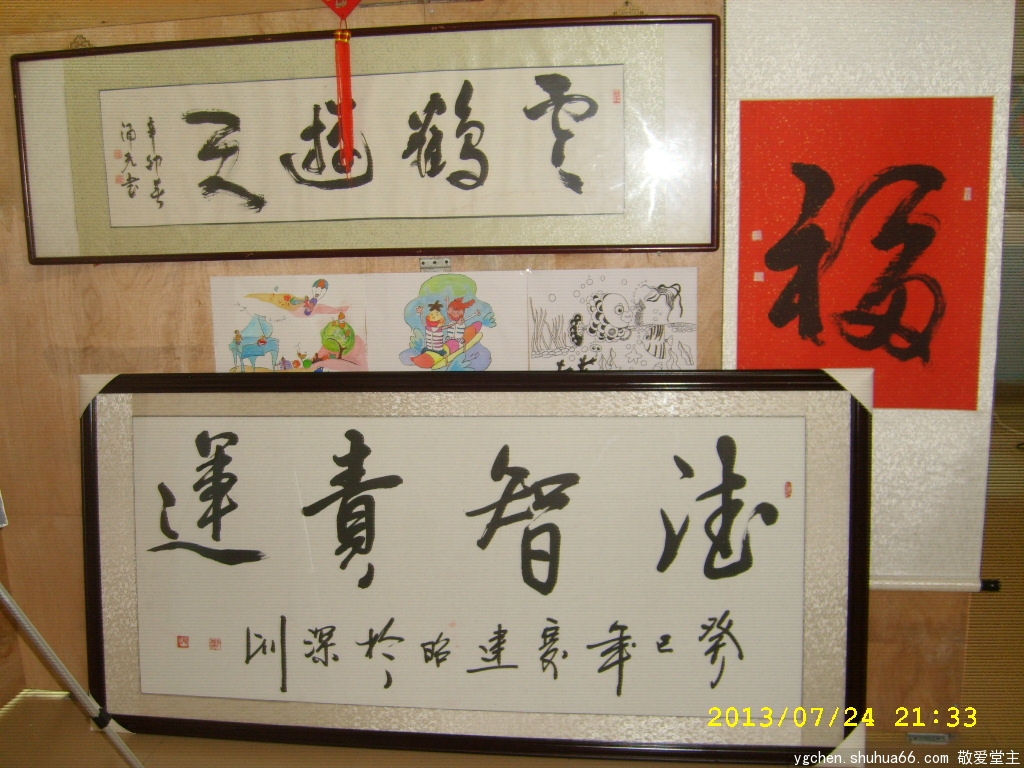 雲鶴遊天
辛卯春
福
德智責運
癸巳年夏建昭於深圳
2013/07/24 21:33
ygchen.shuhua66.com 敬爱堂主